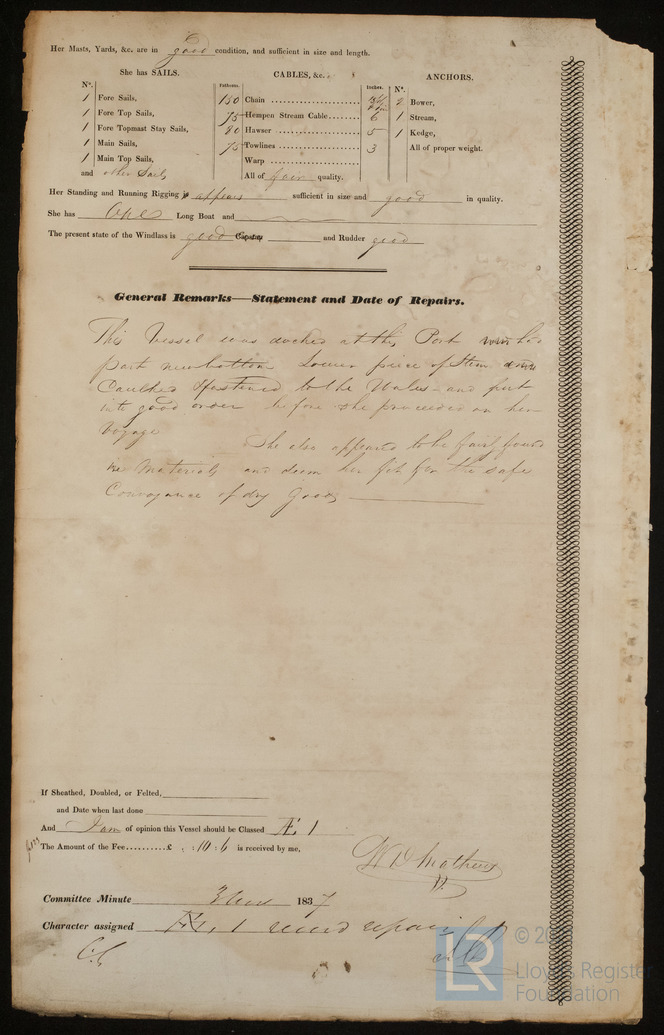 Her Masts, Yards, &c. are in good condition, and sufficient in size and length.
She has SAILS.
CABLES, &c.
ANCHORS.
Nº.
Fathoms.
Inches.
Nº.
1 Fore Sails,
150 Chain
2 Bower,
1 Fore Top Sails,
75 Hempen Stream Cable 6
1 Stream,
1 Fore Topmast Stay Sails,
80 Hawser 5
1 Kedge,
1 Main Sails,
75 Towlines 3
All of proper weight.
1 Main Top Sails,
Warp
and other Sails
All of fair quality.
Her Standing and Running Rigging appears sufficient in size and good in quality.
She has One Long Boat and
The present state of the Windlass is good Capstan and Rudder good
General Remarks—Statement and Date of Repairs.
This Vessel was docked at this Port had
part new bottom Lower piece of Stem and
Caulked & fastened to the Wales - and put
into good order before she proceeded on her
Voyage
She also appeared to be fairly found
in Materials and deem her fit for the safe
Conveyance of dry Goods
If Sheathed, Doubled, or Felted,
and Date when last done
And I am of opinion this Vessel should be Classed Æ 1
The Amount of the Fee £ : 10 : 6 is received by me,
W D Mathews
Committee Minute 1837
Character assigned Æ 1 record repairs
©
LR
Lloyd's Register
Foundation